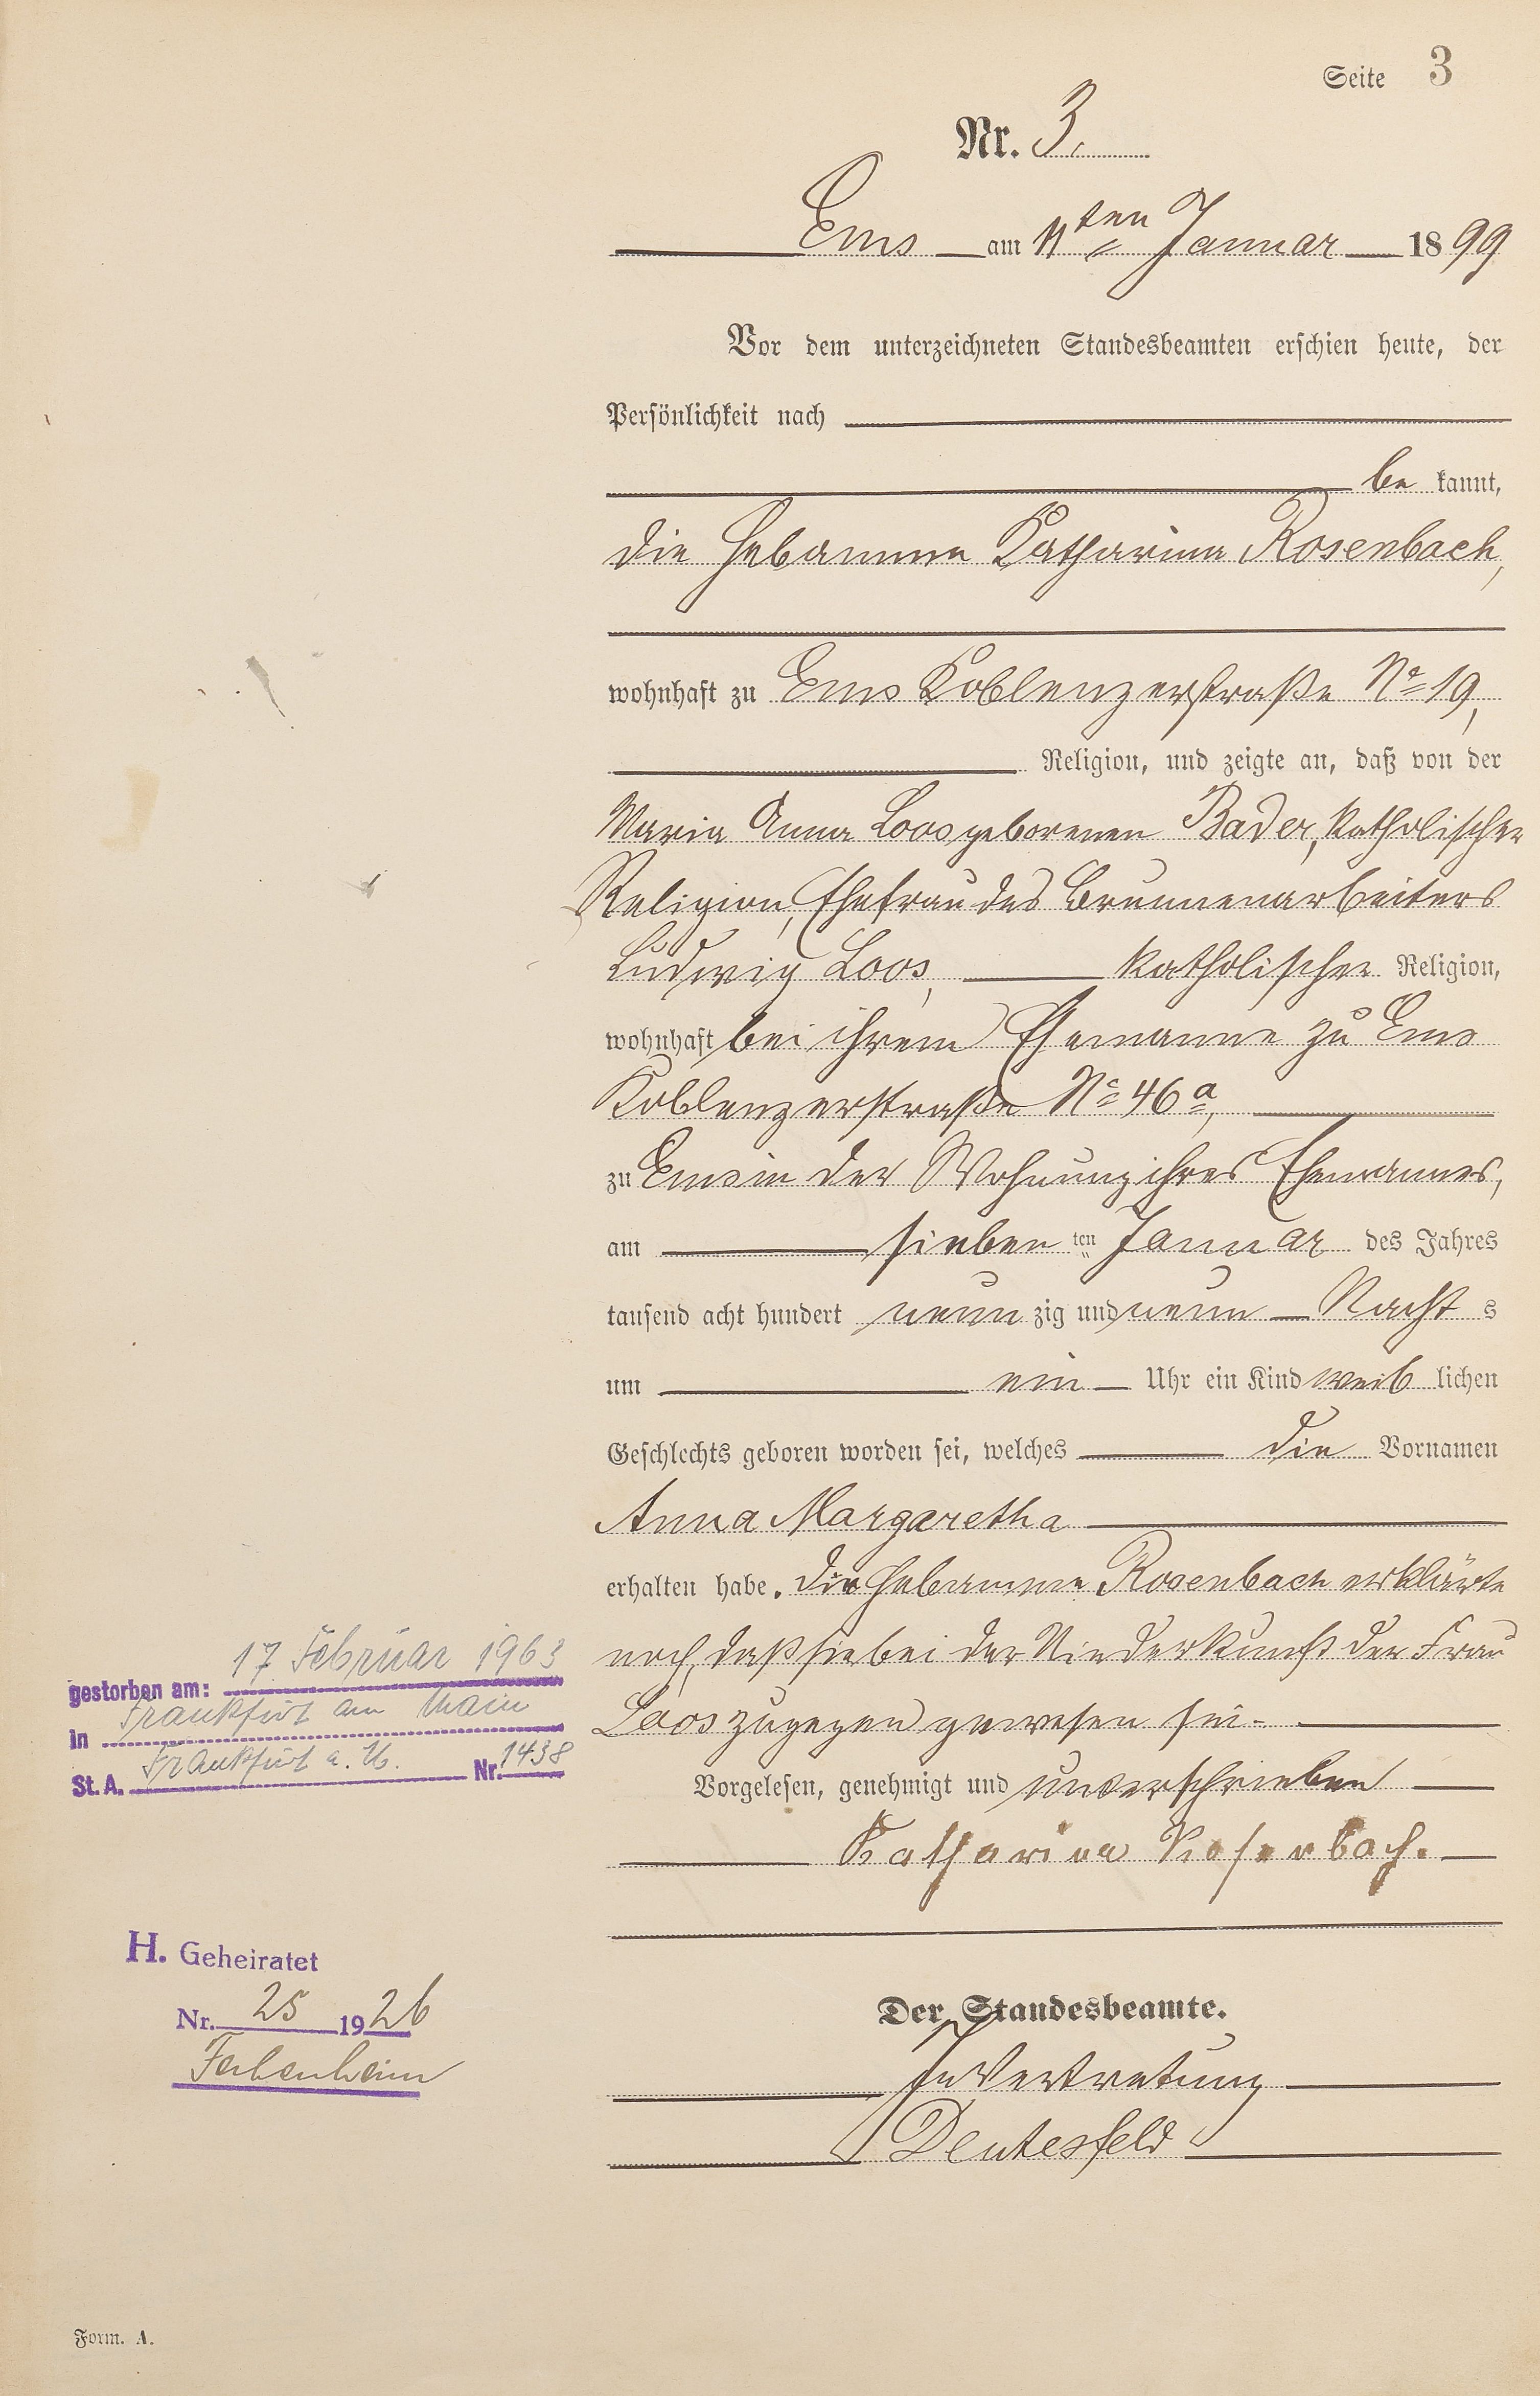 Seite 3
Nr. 3.
Ems am 11ten Januar 1899
Vor dem unterzeichneten Standesbeamten erschien heute, der
Persönlichkeit nach
be kannt,
die Hebamme Katharina Rosenbach,
wohnhaft zu Ems Koblenzerstraße No 19,
Religion, und zeigte an, daß von der
Maria Anna Loos geborenen Bader, katholischer
Religion, Ehefrau des Brunnenarbeiters
Ludwig Loos, katholischer Religion,
wohnhaft bei ihrem Ehemanne zu Ems
Koblenzerstraße No 46a,
zu Ems in der Wohnung ihres Ehemannes,
am sieben ten Januar des Jahres
tausend acht hundert neun zig und neun Nacht s
um ein Uhr ein Kind weib lichen
Geschlechts geboren worden sei, welches die Vornamen
Anna Margaretha
erhalten habe. Die Hebamme Rosenbach erklärte
noch, daß sie bei der Niederkunft der Frau
Loos zugegen gewesen sei.
Vorgelesen, genehmigt und unterschrieben
Katharina Rosenbach.
Der Standesbeamte.
In Vertretung
Deutesfeld
gestorben am: 17 Februar 1963
in Frankfurt am Main
St. A. Frankfurt a. M. Nr. 1438
H. Geheiratet
Nr. 25 1926
Form. A.